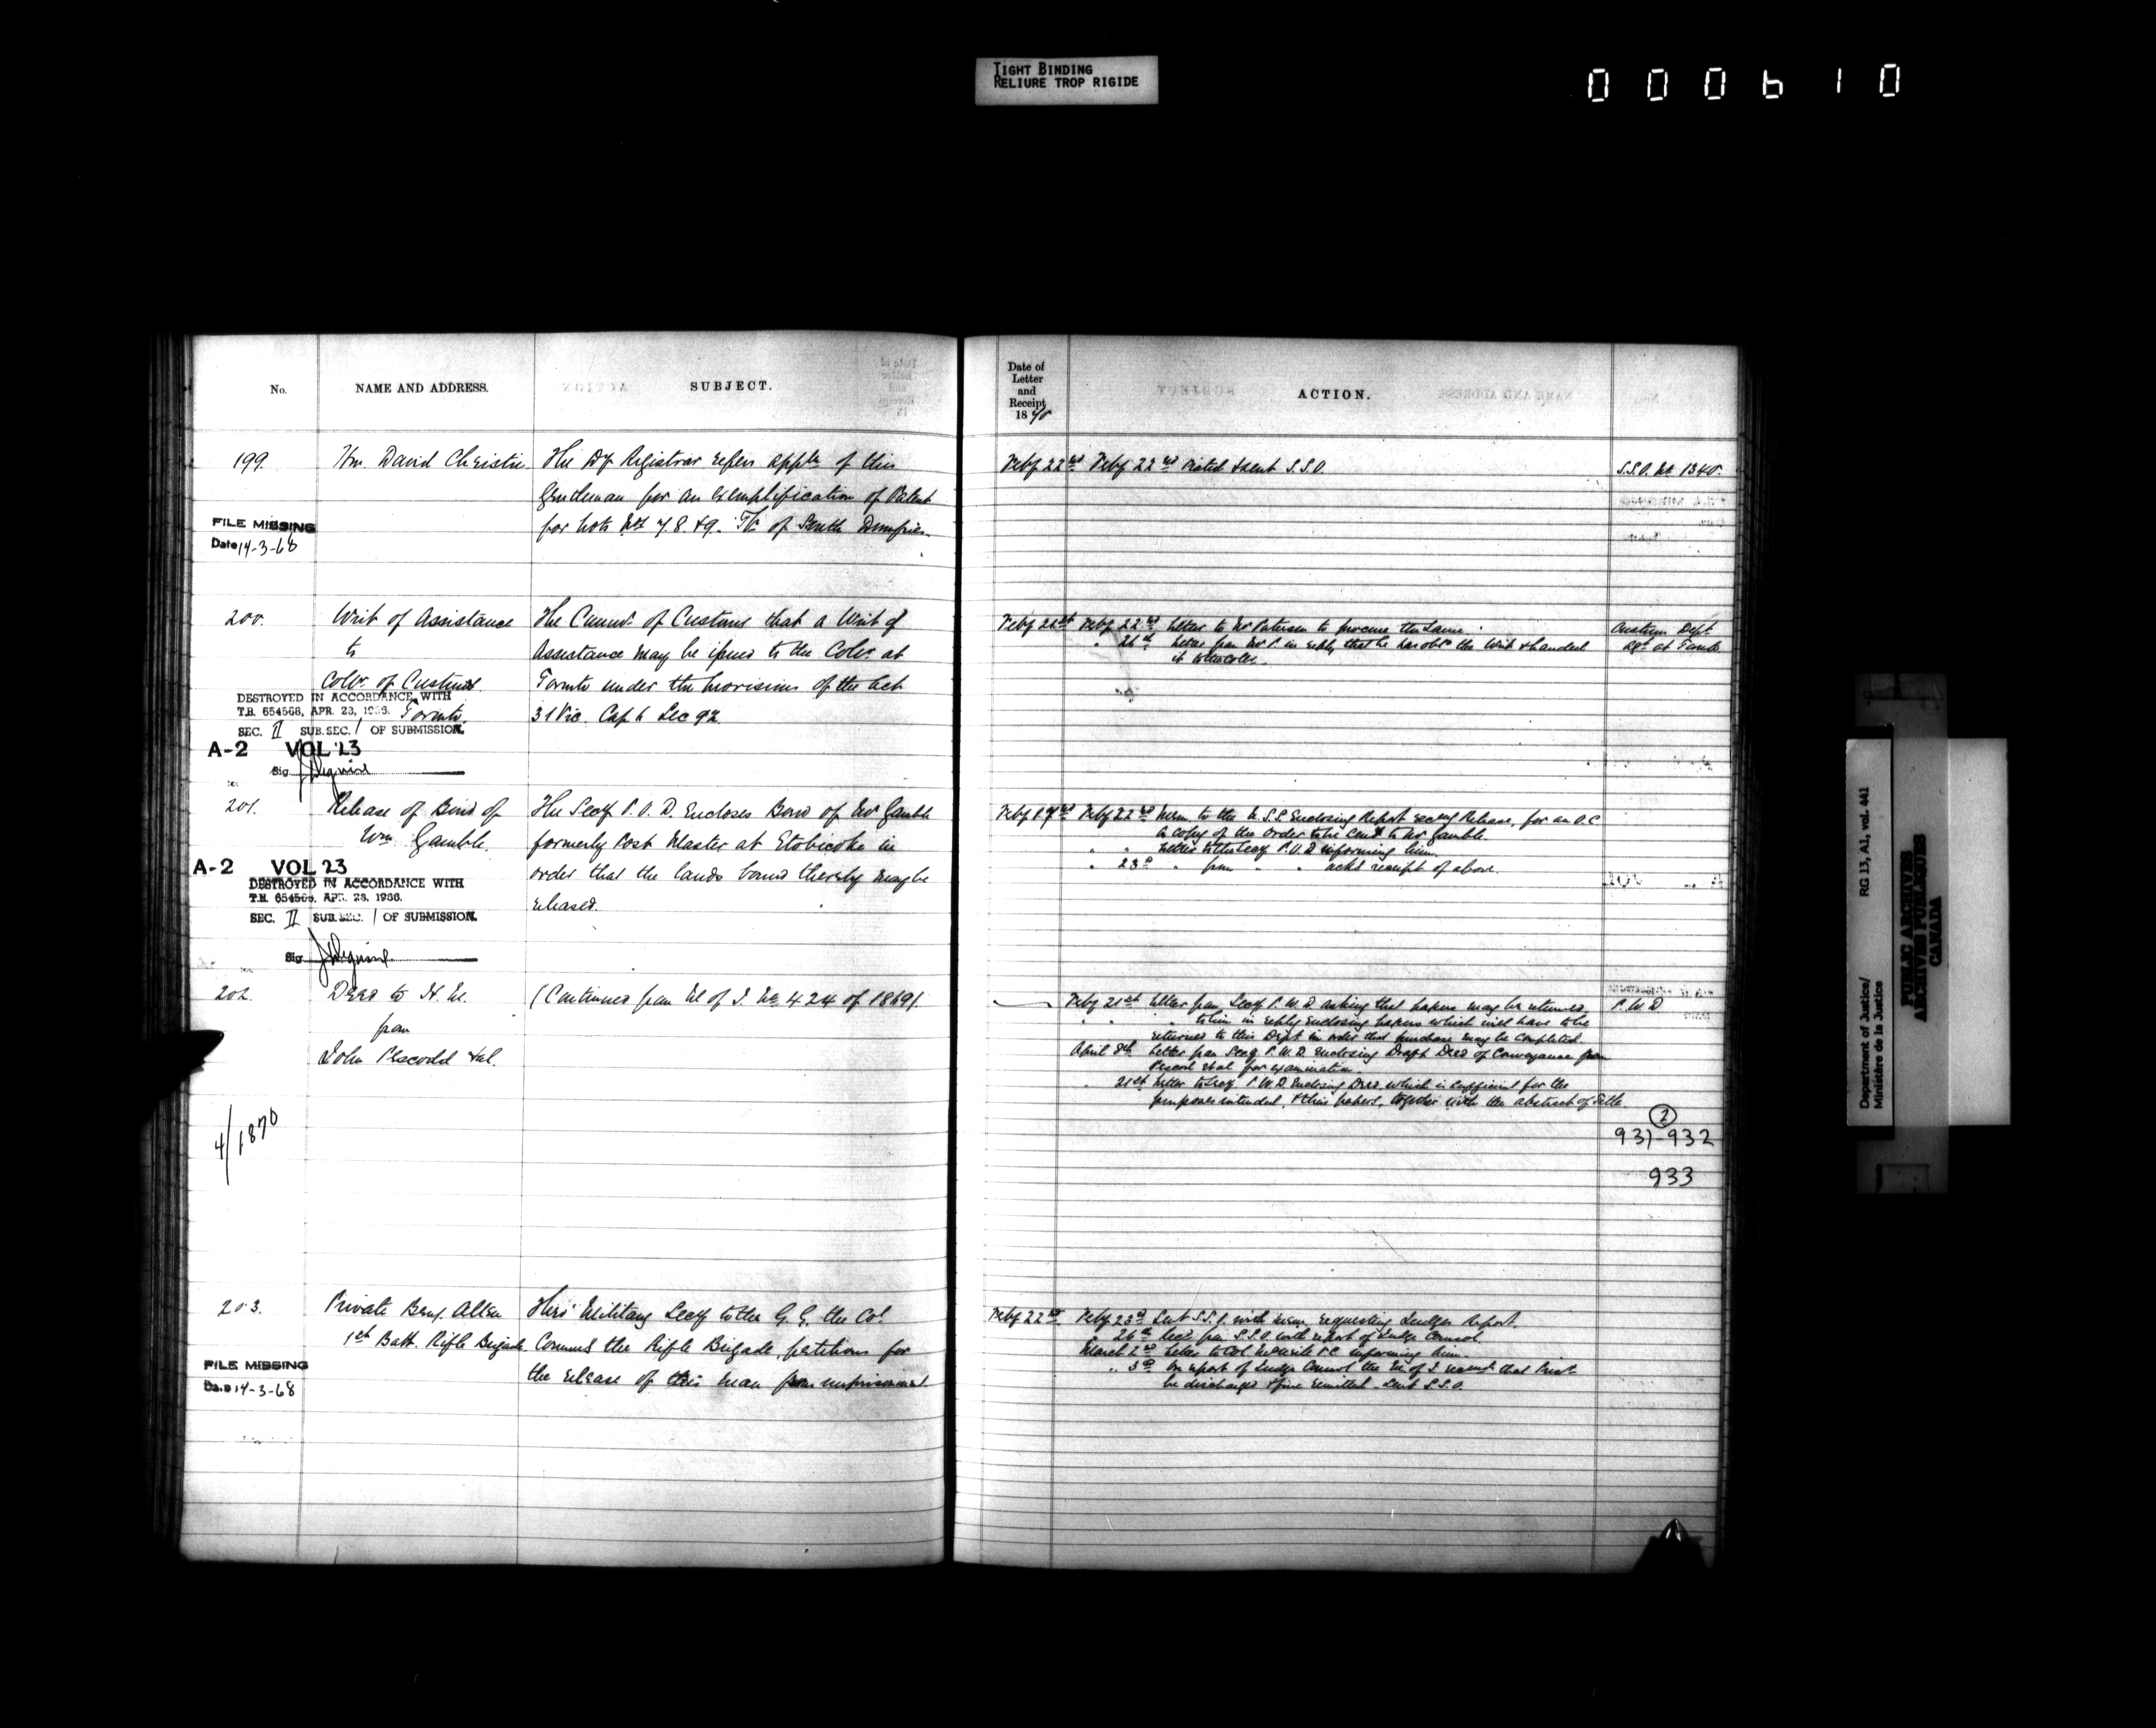 TIGHT BINDING
RELIURE TROP RIGIDE
000610
No.
NAME AND ADDRESS.
SUBJECT.
199.
Hon. David Christie
The Dy Registrar refers appln of this
Gentleman for an exemplification of Patent
for Lots Nos 7. 8 & 9. Tp. of South Dumfries.
FILE MISSING
Date 14-3-68
200.
Writ of Assistance
to
Collr. of Customs
Toronto.
The Commr. of Customs that a Writ of
Assistance may be issued to the Collr. at
Toronto under the provisions of the Act
31 Vic. Cap 6 Sec 92
DESTROYED IN ACCORDANCE WITH
T.B. 654568, APR. 23, 1966.
SEC. II SUB.SEC. / OF SUBMISSION.
A-2 VOL 23
Sig
201.
Release of Bond of
Wm Gamble.
The Secy P. O. D. Encloses Bond of Mr Gamble
formerly Post Master at Etobicoke in
order that the lands bound thereby may be
released.
A-2 VOL 23
DESTROYED IN ACCORDANCE WITH
T.B. 654568, APR. 23, 1966.
SEC. II SUB.SEC. / OF SUBMISSION.
Sig
202.
Deed to H. M.
from
John et al.
(Continued from M of J. No 424 of 1869).
4/1870
203.
Private Benj. Allen
1st Batt. Rifle Brigade
Military Secy to the G. G. the Col.
Commg the Rifle Brigade, petitions for
the release of this man from imprisonment.
FILE MISSING
Date 14-3-68
Date of
Letter
and
Receipt
1870
ACTION.
Feby 22nd Feby 22nd & sent S.S.O.
S.S.O. No 1340.
Feby 21st Feby 22nd Letter to Mr Paterson to procure the same.
" 26th Letter from Mr P. in reply that he has obtd the Writ & handed
it to the Collr.
Customs Dept.
Agt. at Toronto
Feby 17th Feby 22nd Mem. to the U.S.S. Enclosing Report Release, for an O.C.
a copy of the Order to be sent to Mr Gamble.
" " Letter to the Secy P.O.D. informing him.
" 23d " from " " ackg receipt of above.
Feby 21st Letter from Secy P.W.D. asking that papers may be returned
" " to him in reply Enclosing papers which will have to be
returned to this Dept in order that purchase may be completed
April 8th Letter from Secy P.W.D. Enclosing Draft Deed of Conveyance from
et al for examination.
" 21st Letter to Secy P.W.D. Enclosing Deed, which is sufficient for the
purposes intended, & their papers, together with the abstract of title.
P.W.D
2
931-932
933
Feby 22nd Feby 23d Sent S.S.O. with mem. requesting Judges Report.
" 26th Recd from S.S.O. with report of Judge
March 2nd Letter to Col. informing him.
" 3d On report of Judge the M. of J. that Prisr.
be discharged & fine remitted. Sent S.S.O.
Department of Justice/
Ministère de la Justice
RG 13, A1, vol. 441
PUBLIC ARCHIVES
ARCHIVES PUBLIQUES
CANADA